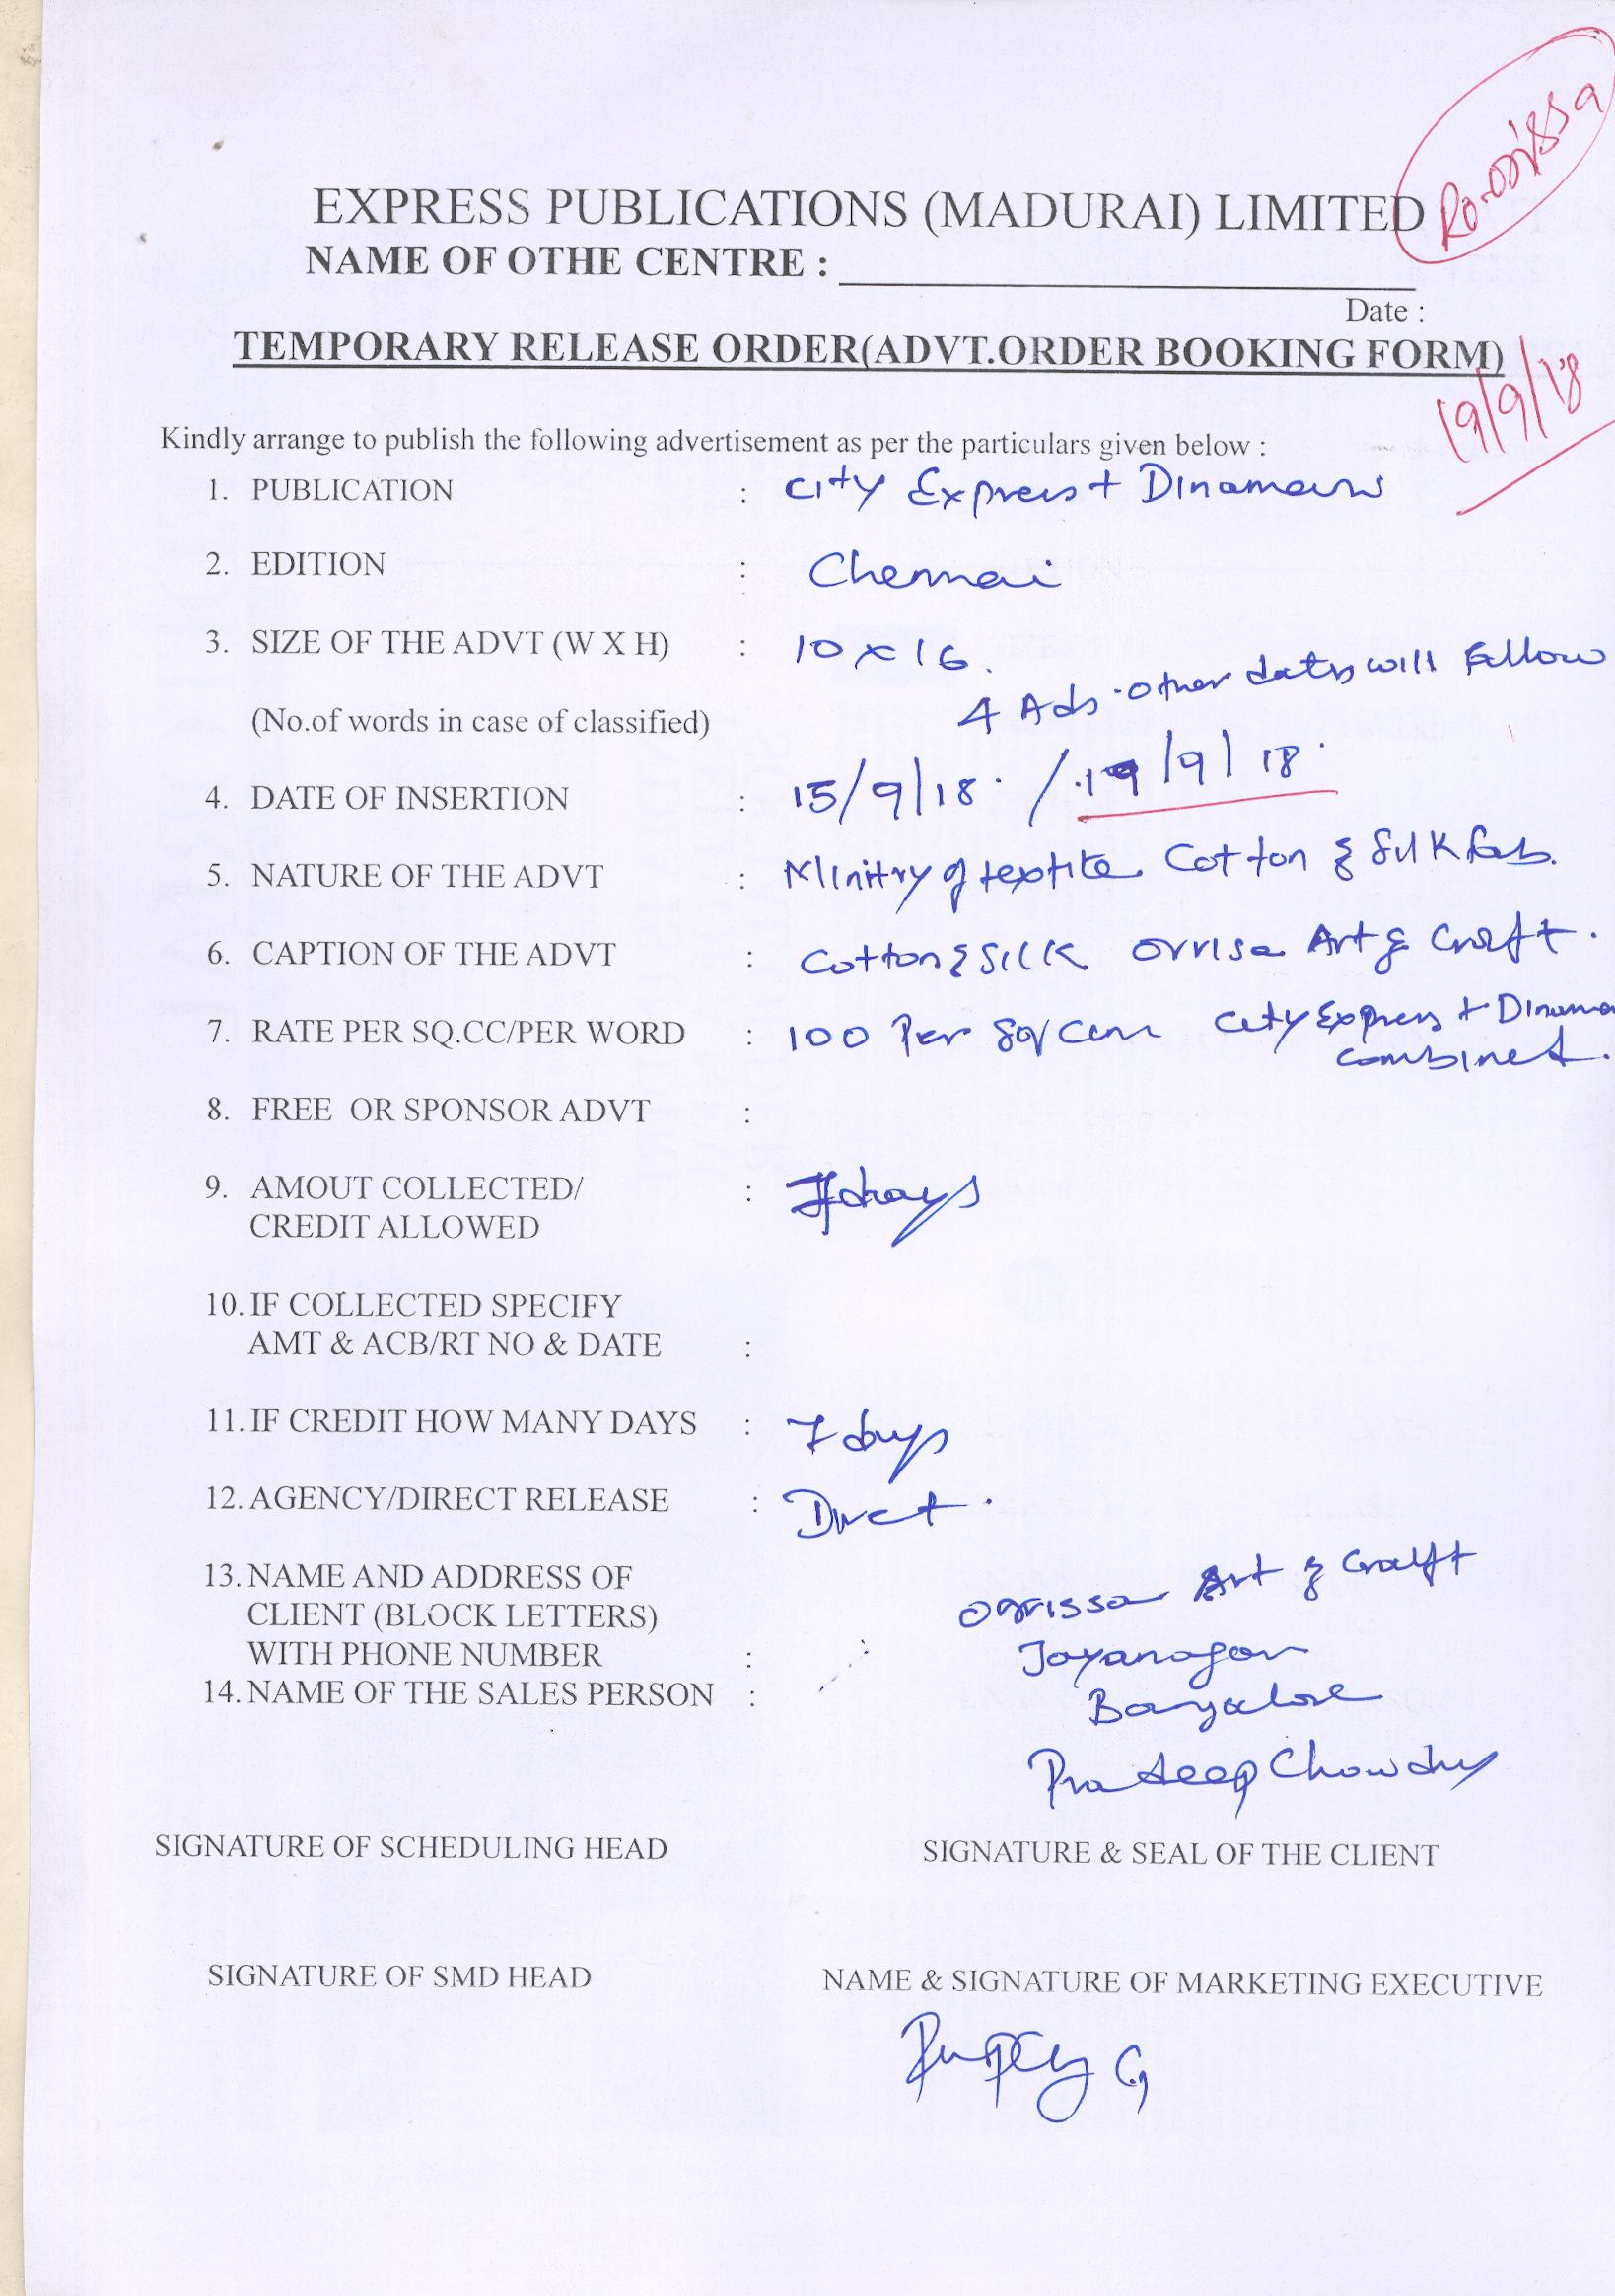 RO-Orissa
EXPRESS PUBLICATIONS (MADURAI) LIMITED
NAME OF OTHE CENTRE :
Date :
TEMPORARY RELEASE ORDER(ADVT.ORDER BOOKING FORM)
19/9/18
Kindly arrange to publish the following advertisement as per the particulars given below :
1. PUBLICATION : City Express + Dinamani
2. EDITION : Chennai
3. SIZE OF THE ADVT (W X H) : 10 x 16.
4 Ads. Other dates will follow
(No.of words in case of classified)
4. DATE OF INSERTION : 15/9/18. / 19/9/18.
5. NATURE OF THE ADVT : Minitry of textile Cotton & Silk fab.
6. CAPTION OF THE ADVT : Cotton & Silk Orrisa Art & Craft.
7. RATE PER SQ.CC/PER WORD : 100 Per Sq Cem City Express + Dinama
combined.
8. FREE OR SPONSOR ADVT :
9. AMOUT COLLECTED/ : 7 days
CREDIT ALLOWED
10. IF COLLECTED SPECIFY
AMT & ACB/RT NO & DATE :
11. IF CREDIT HOW MANY DAYS : 7 days
12. AGENCY/DIRECT RELEASE : Direct.
13. NAME AND ADDRESS OF Orrissa Art & Craft
CLIENT (BLOCK LETTERS)
WITH PHONE NUMBER : Jayanagar
14. NAME OF THE SALES PERSON : Bangalore
Pradeep Chowdhy
SIGNATURE OF SCHEDULING HEAD SIGNATURE & SEAL OF THE CLIENT
SIGNATURE OF SMD HEAD NAME & SIGNATURE OF MARKETING EXECUTIVE